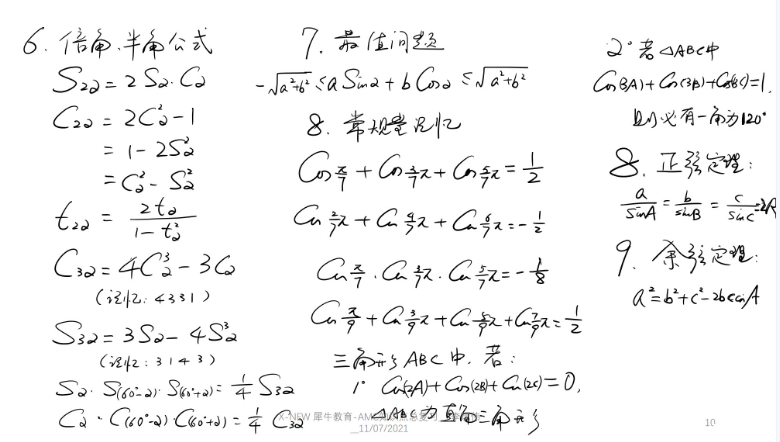 6. 倍角.半角公式
S₂α = 2Sα·Cα
C₂α = 2C²α - 1
= 1 - 2S²α
= C²α - S²α
t₂α = 2tα / (1 - t²α)
C₃α = 4C³α - 3Cα
(记忆: 4331)
S₃α = 3Sα - 4S³α
(记忆: 3143)
Sα · S(60°-α) · S(60°+α) = 1/4 S₃α
Cα · C(60°-α) · C(60°+α) = 1/4 C₃α
7. 最值问题
-√(a²+b²) ≤ a Sinα + b Cosα ≤ √(a²+b²)
8. 常规量记忆
Cos π/7 + Cos 3/7 π + Cos 5/7 π = 1/2
Cos 2/7 π + Cos 4/7 π + Cos 6/7 π = -1/2
Cos π/7 · Cos 3/7 π · Cos 5/7 π = -1/8
Cos π/9 + Cos 3/9 π + Cos 5/9 π + Cos 7/9 π = 1/2
三角形ABC中, 若:
1° Cos(2A) + Cos(2B) + Cos(2C) = 0,
△ABC为直角三角形
2° 若△ABC中
Cos(3A) + Cos(3B) + Cos(3C) = 1,
则必有一角为120°
8. 正弦定理:
a/SinA = b/SinB = c/SinC = 2R
9. 余弦定理:
a² = b² + c² - 2bc cosA
X-NEW 犀牛教育-AM
11/07/2021
10